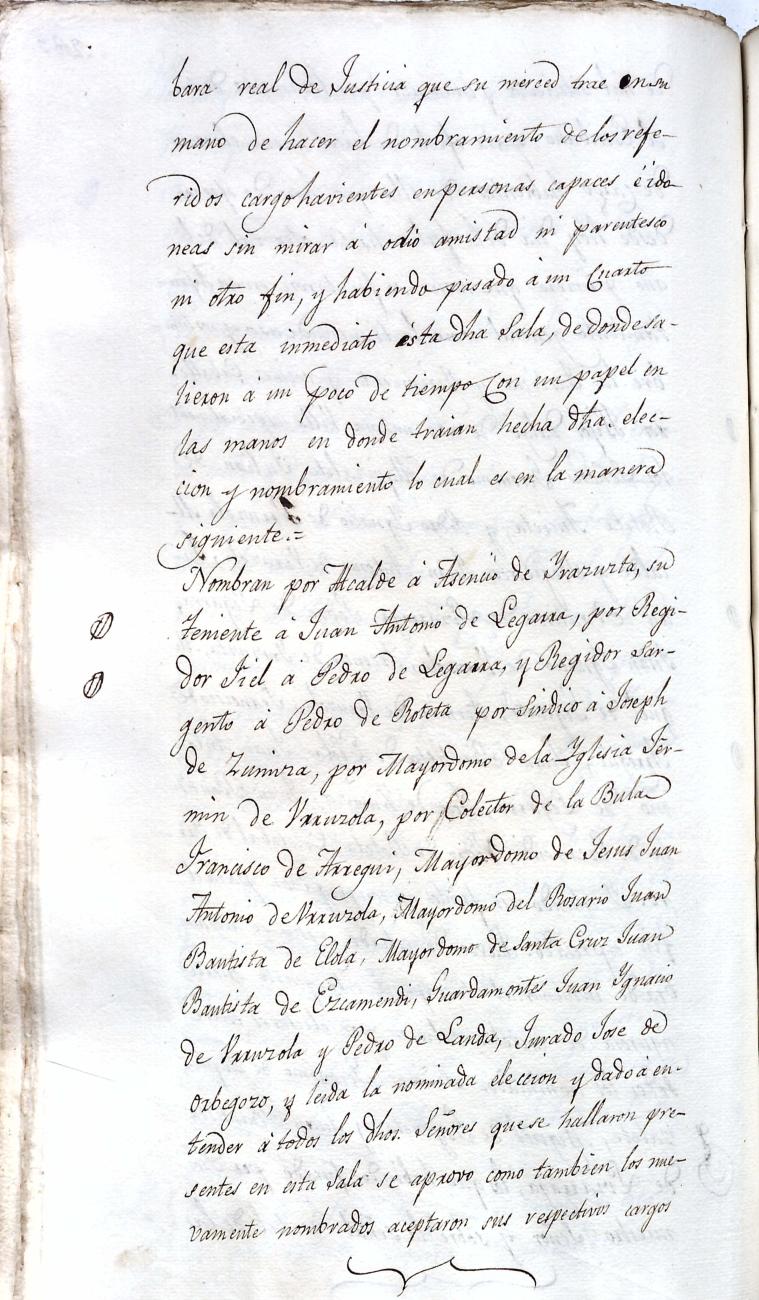 bara real de Justicia que su merced trae en su
mano de hacer el nombramiento de los refe-
ridos cargohavientes en personas capaces é ido
neas sin mirar á odio amistad ni parentesco
ni otro fin, y habiendo pasado á un Cuarto
que esta inmediato ésta dha Sala, de donde sa-
lieron á un poco de tiempo Con un papel en
las manos en donde traian hecha dha. elec-
cion y nombramiento lo cual es en la manera
siguiente.=
Nombran por Alcalde á Asencio de Yrazuzta, su
teniente á Juan Antonio de Legarra, por Regi-
dor Fiel á Pedro de Legarra, y Regidor Sar-
gento á Pedro de Roteta por Sindico á Joseph
de Zuniza, por Mayordomo de la Yglesia Fer-
min de Urruzola, por Colector de la Bula
Francisco de Arregui, Mayordomo de Jesus Juan
Antonio de Urruzola, Mayordomo del Rosario Juan
Bautista de Elola, Mayordomo de Santa Cruz Juan
Bautista de Ezcamendi, Guardamontes Juan Ygnacio
de Urruzola y Pedro de Landa, Jurado Jose de
Orbegozo, y leida la nominada eleccion y dado á en-
tender á todos los dhos. Señores que se hallaron pre-
sentes en esta Sala se aprovo como tambien los nue-
vamente nombrados aceptaron sus respectivos cargos